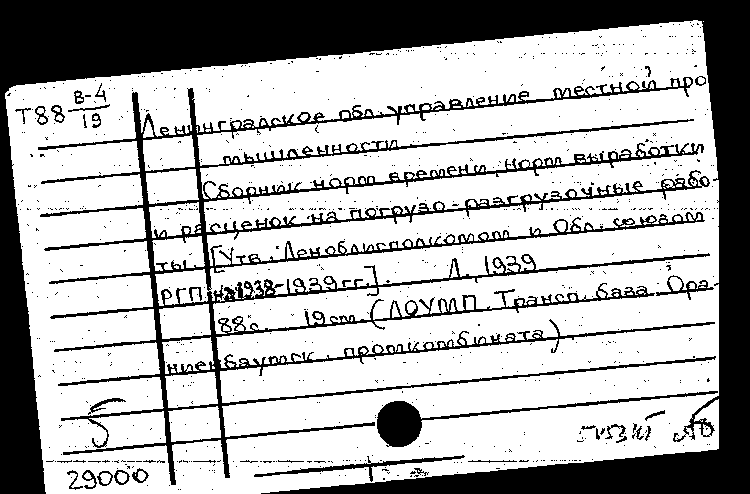 Т88 В-4/19
Ленинградское обл. управление местной про
мышленности.
Сборник норм времени, норм выработки
и расценок на погрузо-разгрузочные рабо-
ты. [Утв. Леноблисполкомом и Обл. союзом
РГП на 1938-1939 гг.]. Л., 1939
88с. 19см. (ЛОУМП. Трансп. база Ора-
ниенбаумск. промкомбината).
Б
29000